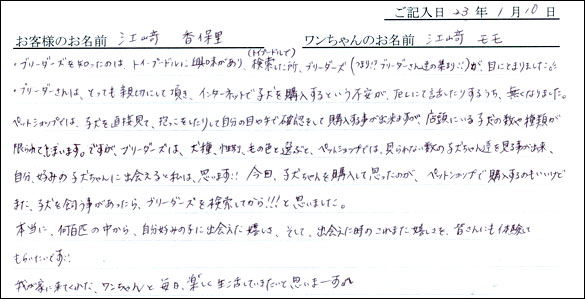 ご記入日 23年 1月 10日
お客様のお名前 江﨑 香保里 ワンちゃんのお名前 江﨑 モモ
(トイプードルで)
・ブリーダーズを知ったのは、トイ・プードルに興味があり、検索した所、ブリーダーズ(つまり!?ブリーダーさん達の集まり!?)が、目にとまりました。
・ブリーダーさんは、とっても親切にして頂き、インターネットで子犬を購入するという不安が、TELにて話したりするうち、無くなりました。
ペットショップでは、子犬を直接見て、抱っこをしたりして自分の目や手で確認をして購入する事が出来ますが、店頭にいる子犬の数や種類が
限られてしまいます。ですが、ブリーダーズは、犬種、性別、毛の色と選ぶと、ペットショップでは、見られない数の子犬ちゃん達を見る事が出来、
自分、好みの子犬ちゃんに出会えると私は、思います!! 今回、子犬ちゃんを購入して思ったのが、ペットショップで購入するのもいいけど
また、子犬を飼う事があったら、ブリーダーズを検索してから!!!と思いました。
本当に、何百匹の中から、自分好みの子に出会えた嬉しさ、そして、出会えた時のこれまた嬉しさを、皆さんにも体験して
もらいたいです!!
我が家に来てくれた、ワンちゃんと毎日、楽しく生活していきたいと思いまーす。